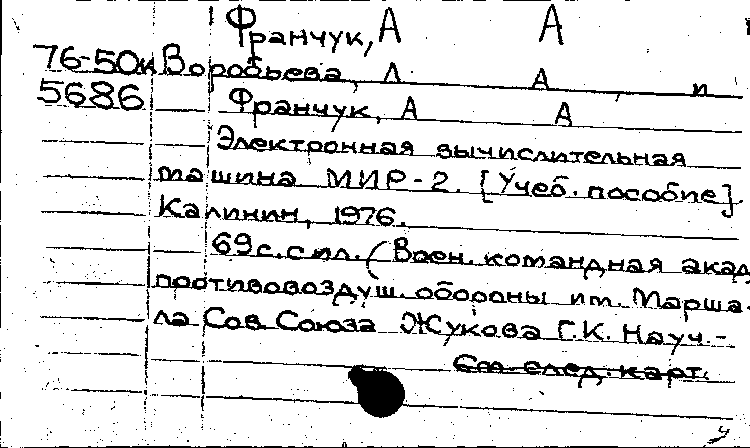 Франчук, А А
76-50к Воробьева, Л. А., и
5686 Франчук, А А
Электронная вычислительная
машина МИР-2. [Учеб. пособие].
Калинин, 1976.
69 с. с ил. (Воен. командная акад.
противовоздуш. обороны им. Марша-
ла Сов. Союза Жукова Г.К. Науч.-
См. след. карт.